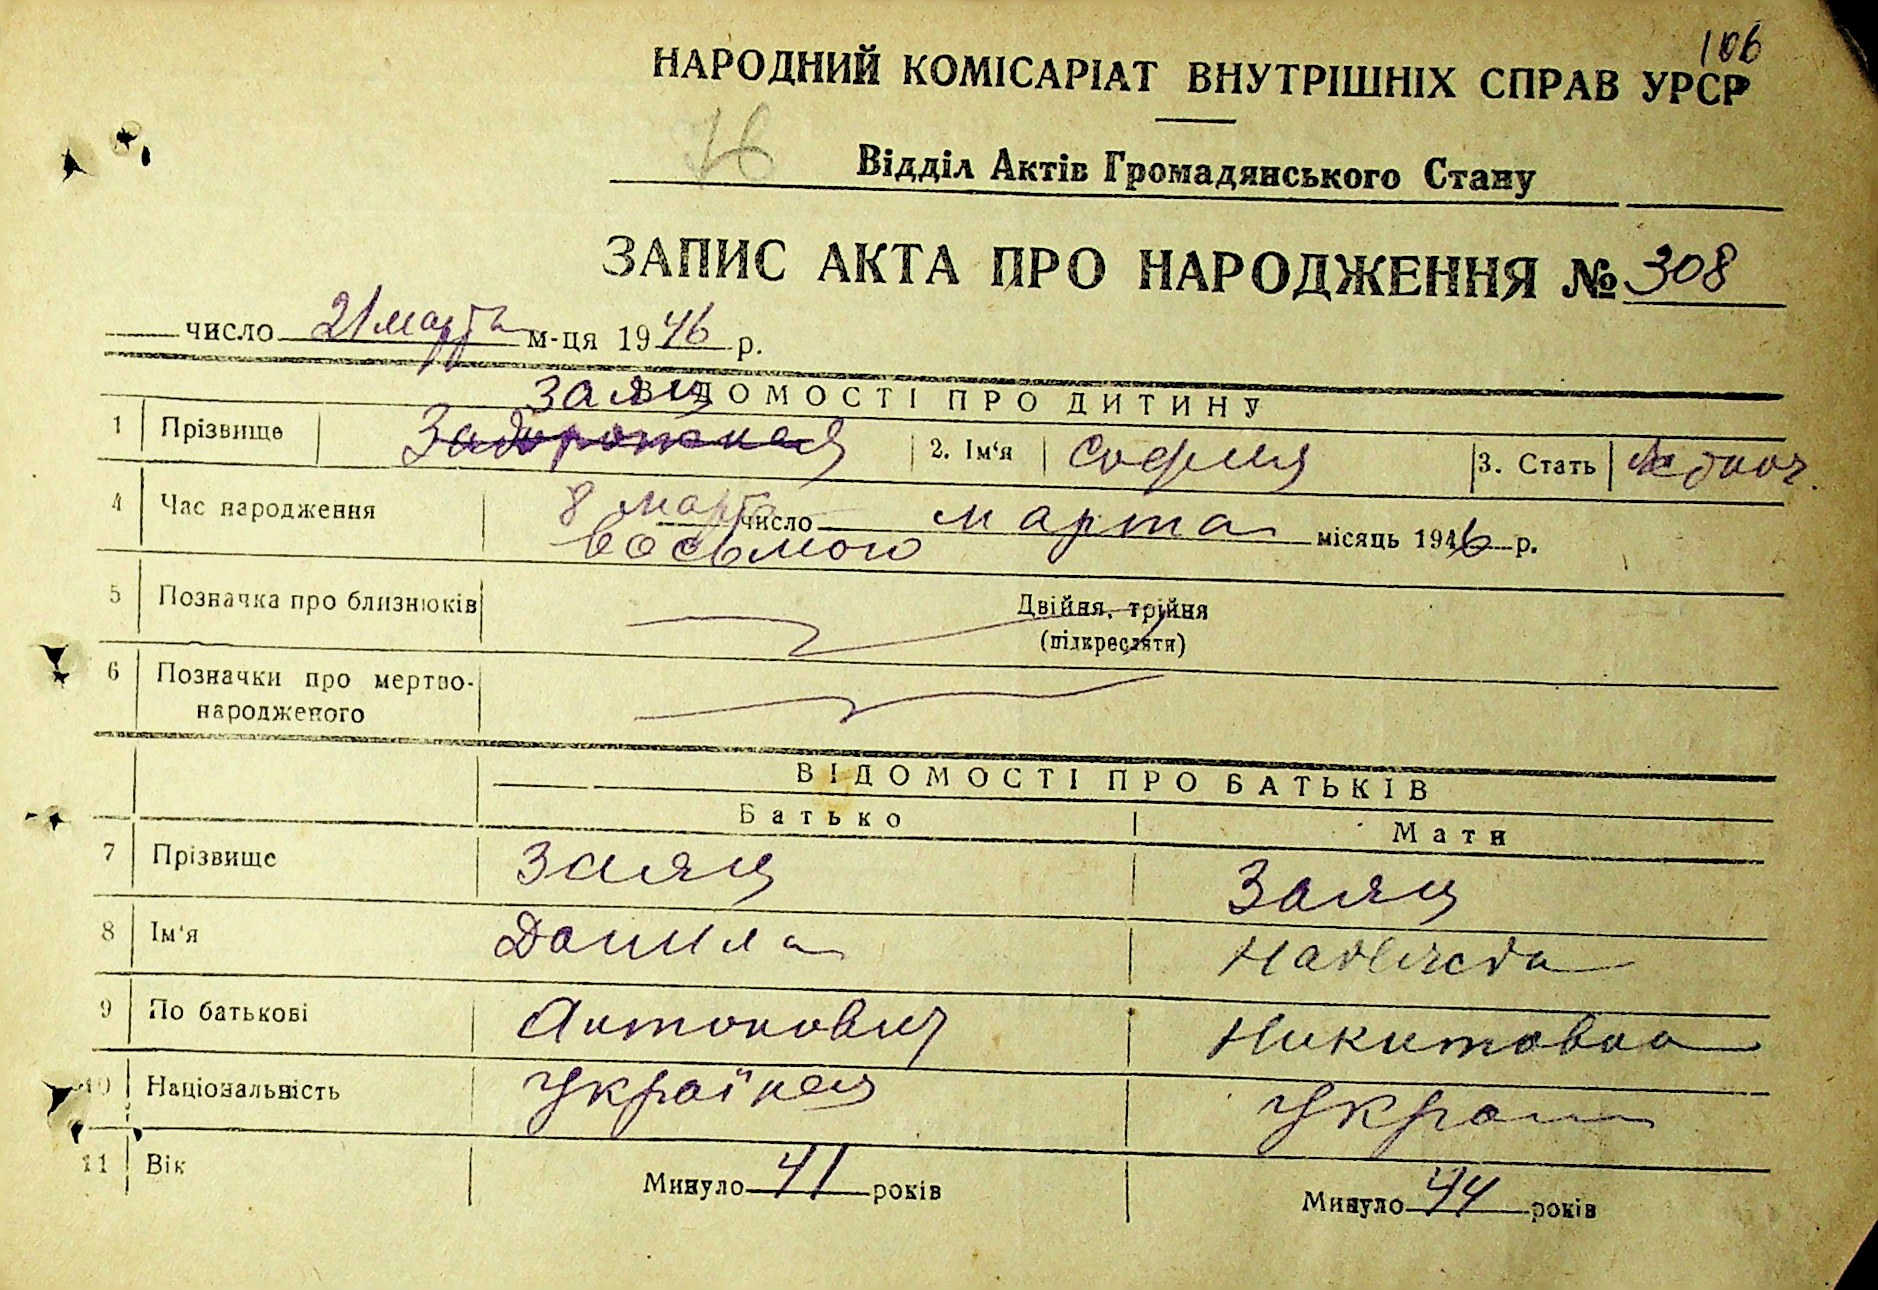 106
НАРОДНИЙ КОМІСАРІАТ ВНУТРІШНІХ СПРАВ УРСР
Відділ Актів Громадянського Стану
ЗАПИС АКТА ПРО НАРОДЖЕННЯ № 308
число 21 марта м-ця 1946 р.
ВІДОМОСТІ ПРО ДИТИНУ
Заяц
1 Прізвище Задорожная 2. Ім'я София 3. Стать
4 Час народження 8 марта число марта місяць 1946 р.
восьмого
5 Позначка про близнюків Двійня, трійня
(підкреслити)
6 Позначки про мертво-
народженого
ВІДОМОСТІ ПРО БАТЬКІВ
Батько Мати
7 Прізвище Заяц Заяц
8 Ім'я Данила Надежда
9 По батькові Антонович Никитовна
10 Національність
11 Вік Минуло 41 років Минуло 44 років